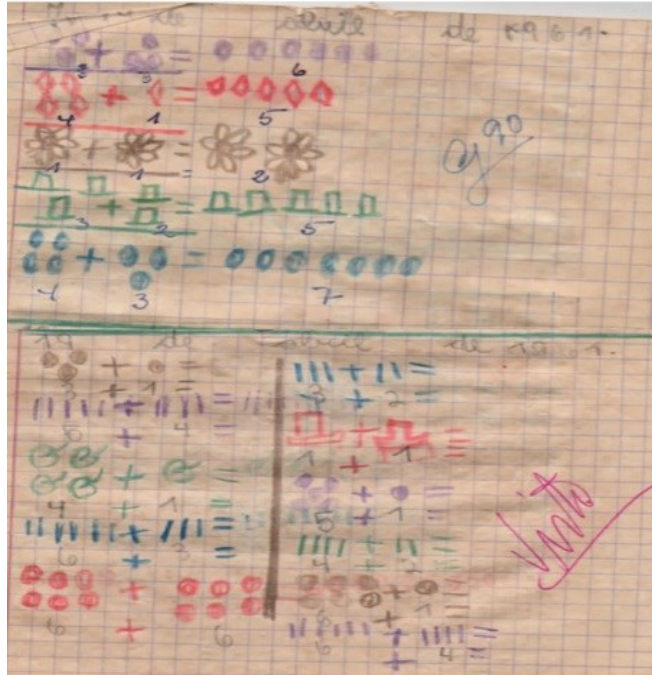 de abril de 1961.
3 3 6
4 1 5
1 1 2
3 2 5
90
4 3 7
19 de abril de 19 1.
3 + 1 =
5 + 4 =
4 + 1 =
6 + 3 =
6 + 6
3 + 2 =
1 + 1 =
5 + 1 =
4 + 2 =
+ 1 =
6 + 4 =
Visto